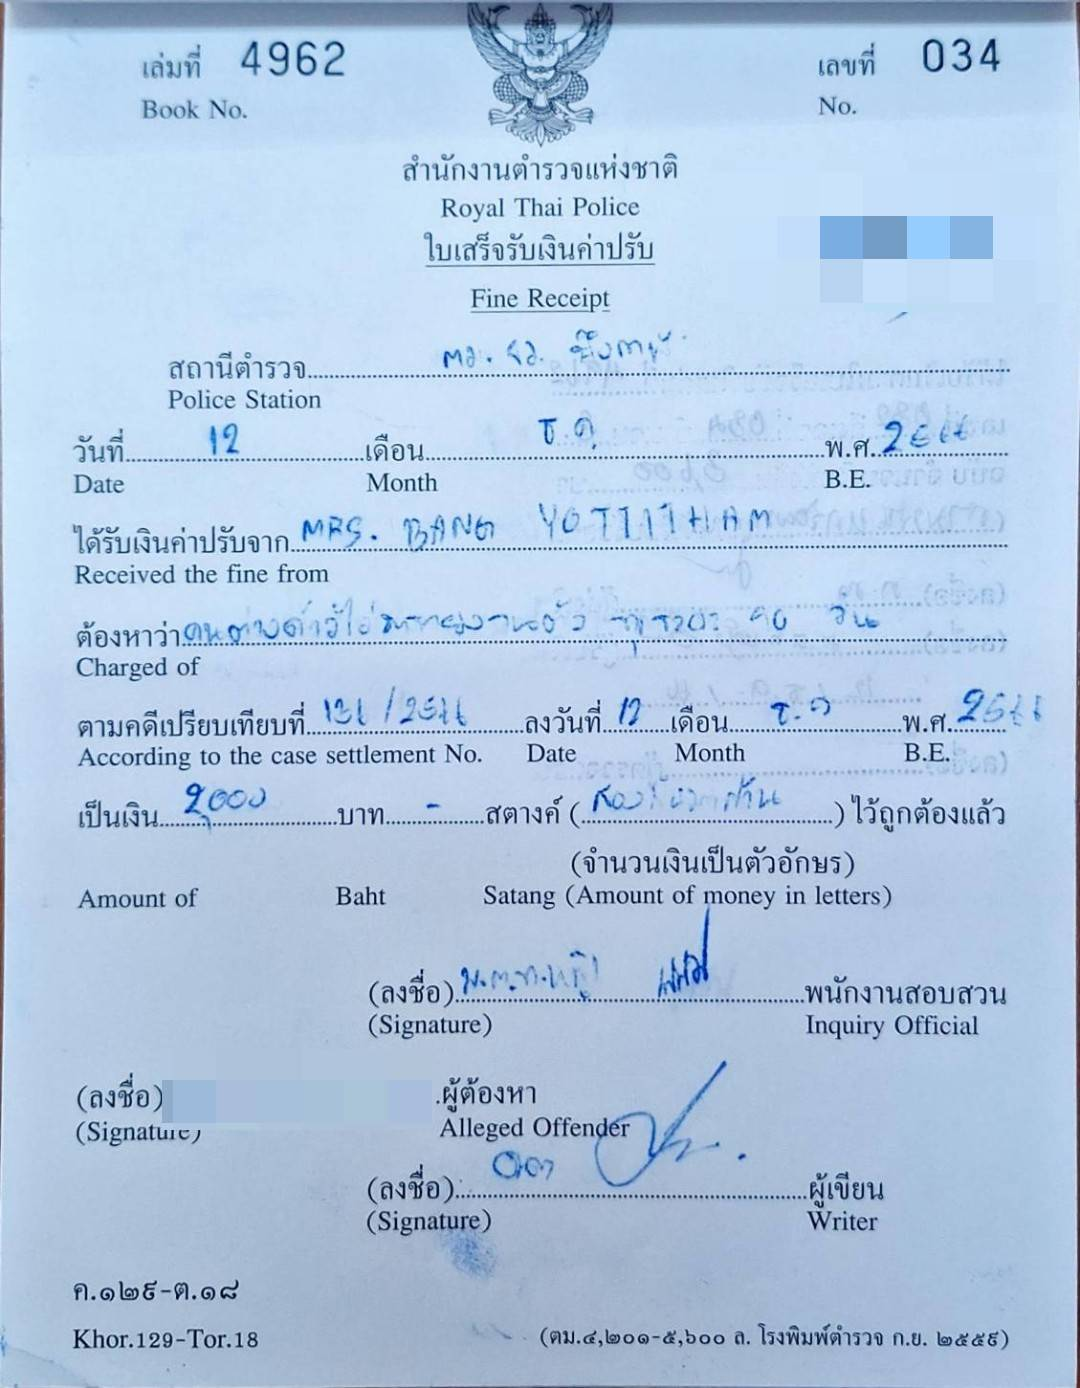 เล่มที่ 4962 เลขที่ 034
Book No. No.
สำนักงานตำรวจแห่งชาติ
Royal Thai Police
ใบเสร็จรับเงินค่าปรับ
Fine Receipt
สถานีตำรวจ ตม. จว.
Police Station
วันที่ 12 เดือน ธ.ค. พ.ศ. 2566
Date Month B.E.
ได้รับเงินค่าปรับจาก MRS. BANG
Received the fine from
ต้องหาว่า คนต่างด้าว 90 วัน
Charged of
ตามคดีเปรียบเทียบที่ /2566 ลงวันที่ 12 เดือน ธ.ค พ.ศ. 2566
According to the case settlement No. Date Month B.E.
เป็นเงิน 2,000 บาท - สตางค์ (สองพันบาทถ้วน) ไว้ถูกต้องแล้ว
(จำนวนเงินเป็นตัวอักษร)
Amount of Baht Satang (Amount of money in letters)
(ลงชื่อ) พนักงานสอบสวน
(Signature) Inquiry Official
(ลงชื่อ) ผู้ต้องหา
(Signature) Alleged Offender
(ลงชื่อ) ผู้เขียน
(Signature) Writer
ค.๑๒๙-ต.๑๘
Khor.129-Tor.18 (ตม.๔,๒๐๑-๕,๖๐๐ ล. โรงพิมพ์ตำรวจ ก.ย. ๒๕๕๙)